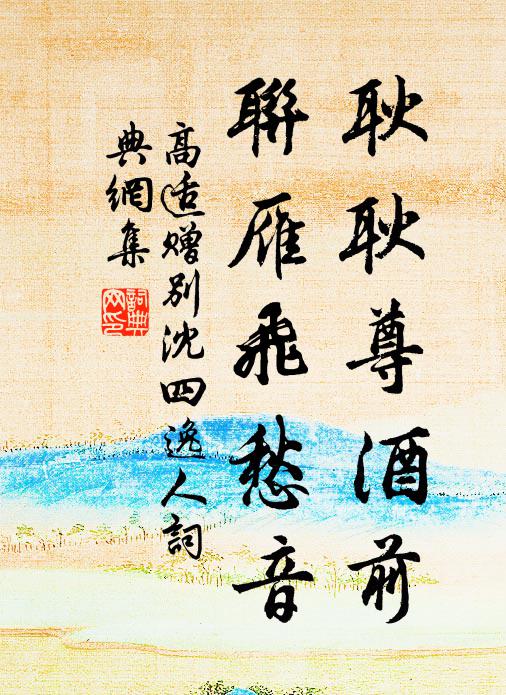 耿耿尊酒前
聯雁飛愁音
高适贈別沈四逸人詞
典網集
詞典網印